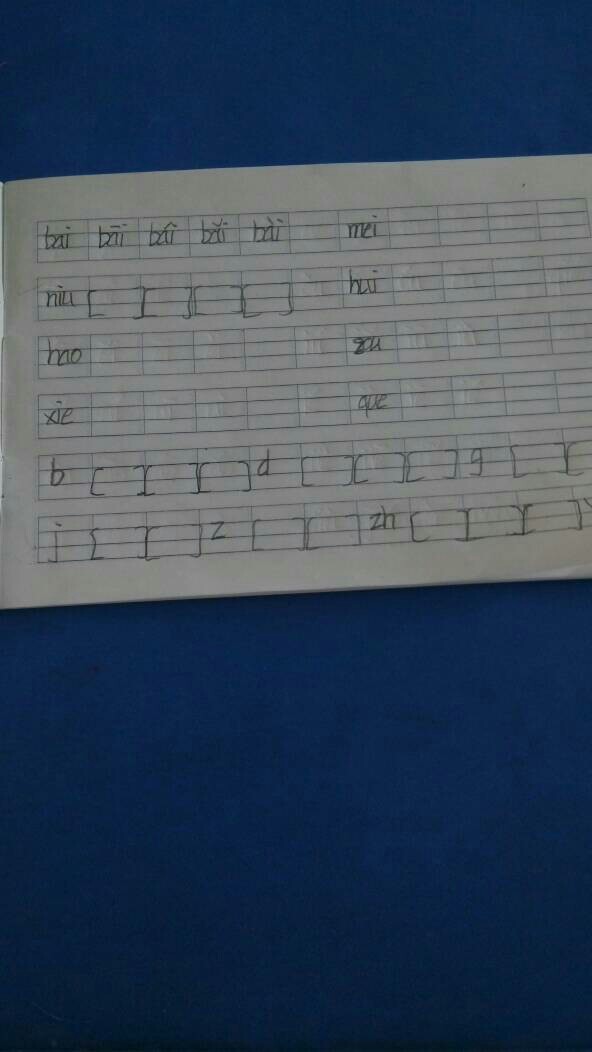 bai bāi bái bǎi bài mei
niu [ ] [ ] [ ] [ ] hui
hao zu
xie que
b [ ] [ ] [ ] d [ ] [ ] [ ] g [ ] [
j [ ] [ ] z [ ] [ ] zh [ ] [ ] [ ]